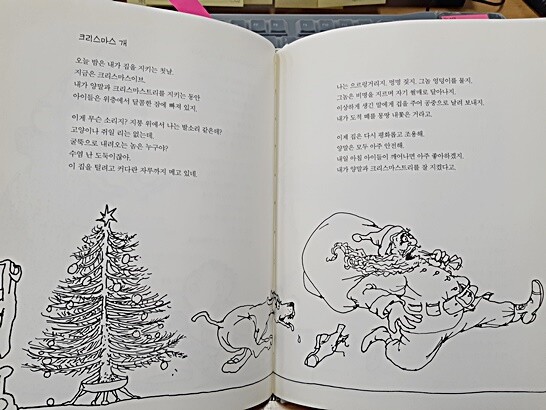 크리스마스 개
오늘 밤은 내가 집을 지키는 첫날.
지금은 크리스마스이브.
내가 양말과 크리스마스트리를 지키는 동안
아이들은 위층에서 달콤한 잠에 빠져 있지.
이게 무슨 소리지? 지붕 위에서 나는 발소리 같은데?
고양이나 쥐일 리는 없는데,
굴뚝으로 내려오는 놈은 누구야?
수염 난 도둑이잖아.
이 집을 털려고 커다란 자루까지 메고 있네.
나는 으르렁거리지, 멍멍 짖지, 그놈 엉덩이를 물지,
그놈은 비명을 지르며 자기 썰매로 달아나지,
이상하게 생긴 말에게 집을 주어 공중으로 날려 보내지,
내가 도적 떼를 몽땅 내쫓은 거라고,
이제 집은 다시 평화롭고 조용해.
양말은 모두 아주 안전해.
내일 아침 아이들이 깨어나면 아주 좋아하겠지,
내가 양말과 크리스마스트리를 잘 지켰다고,